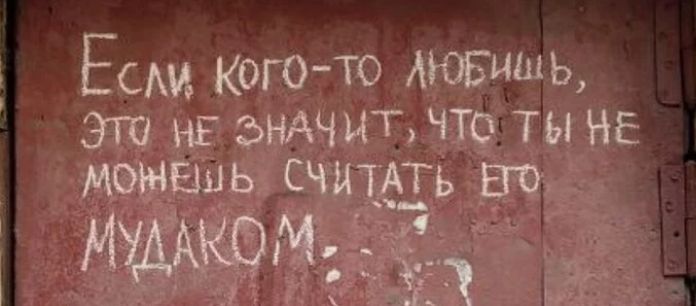 Если кого-то любишь,
это не значит, что ты не
можешь считать его
мудаком.